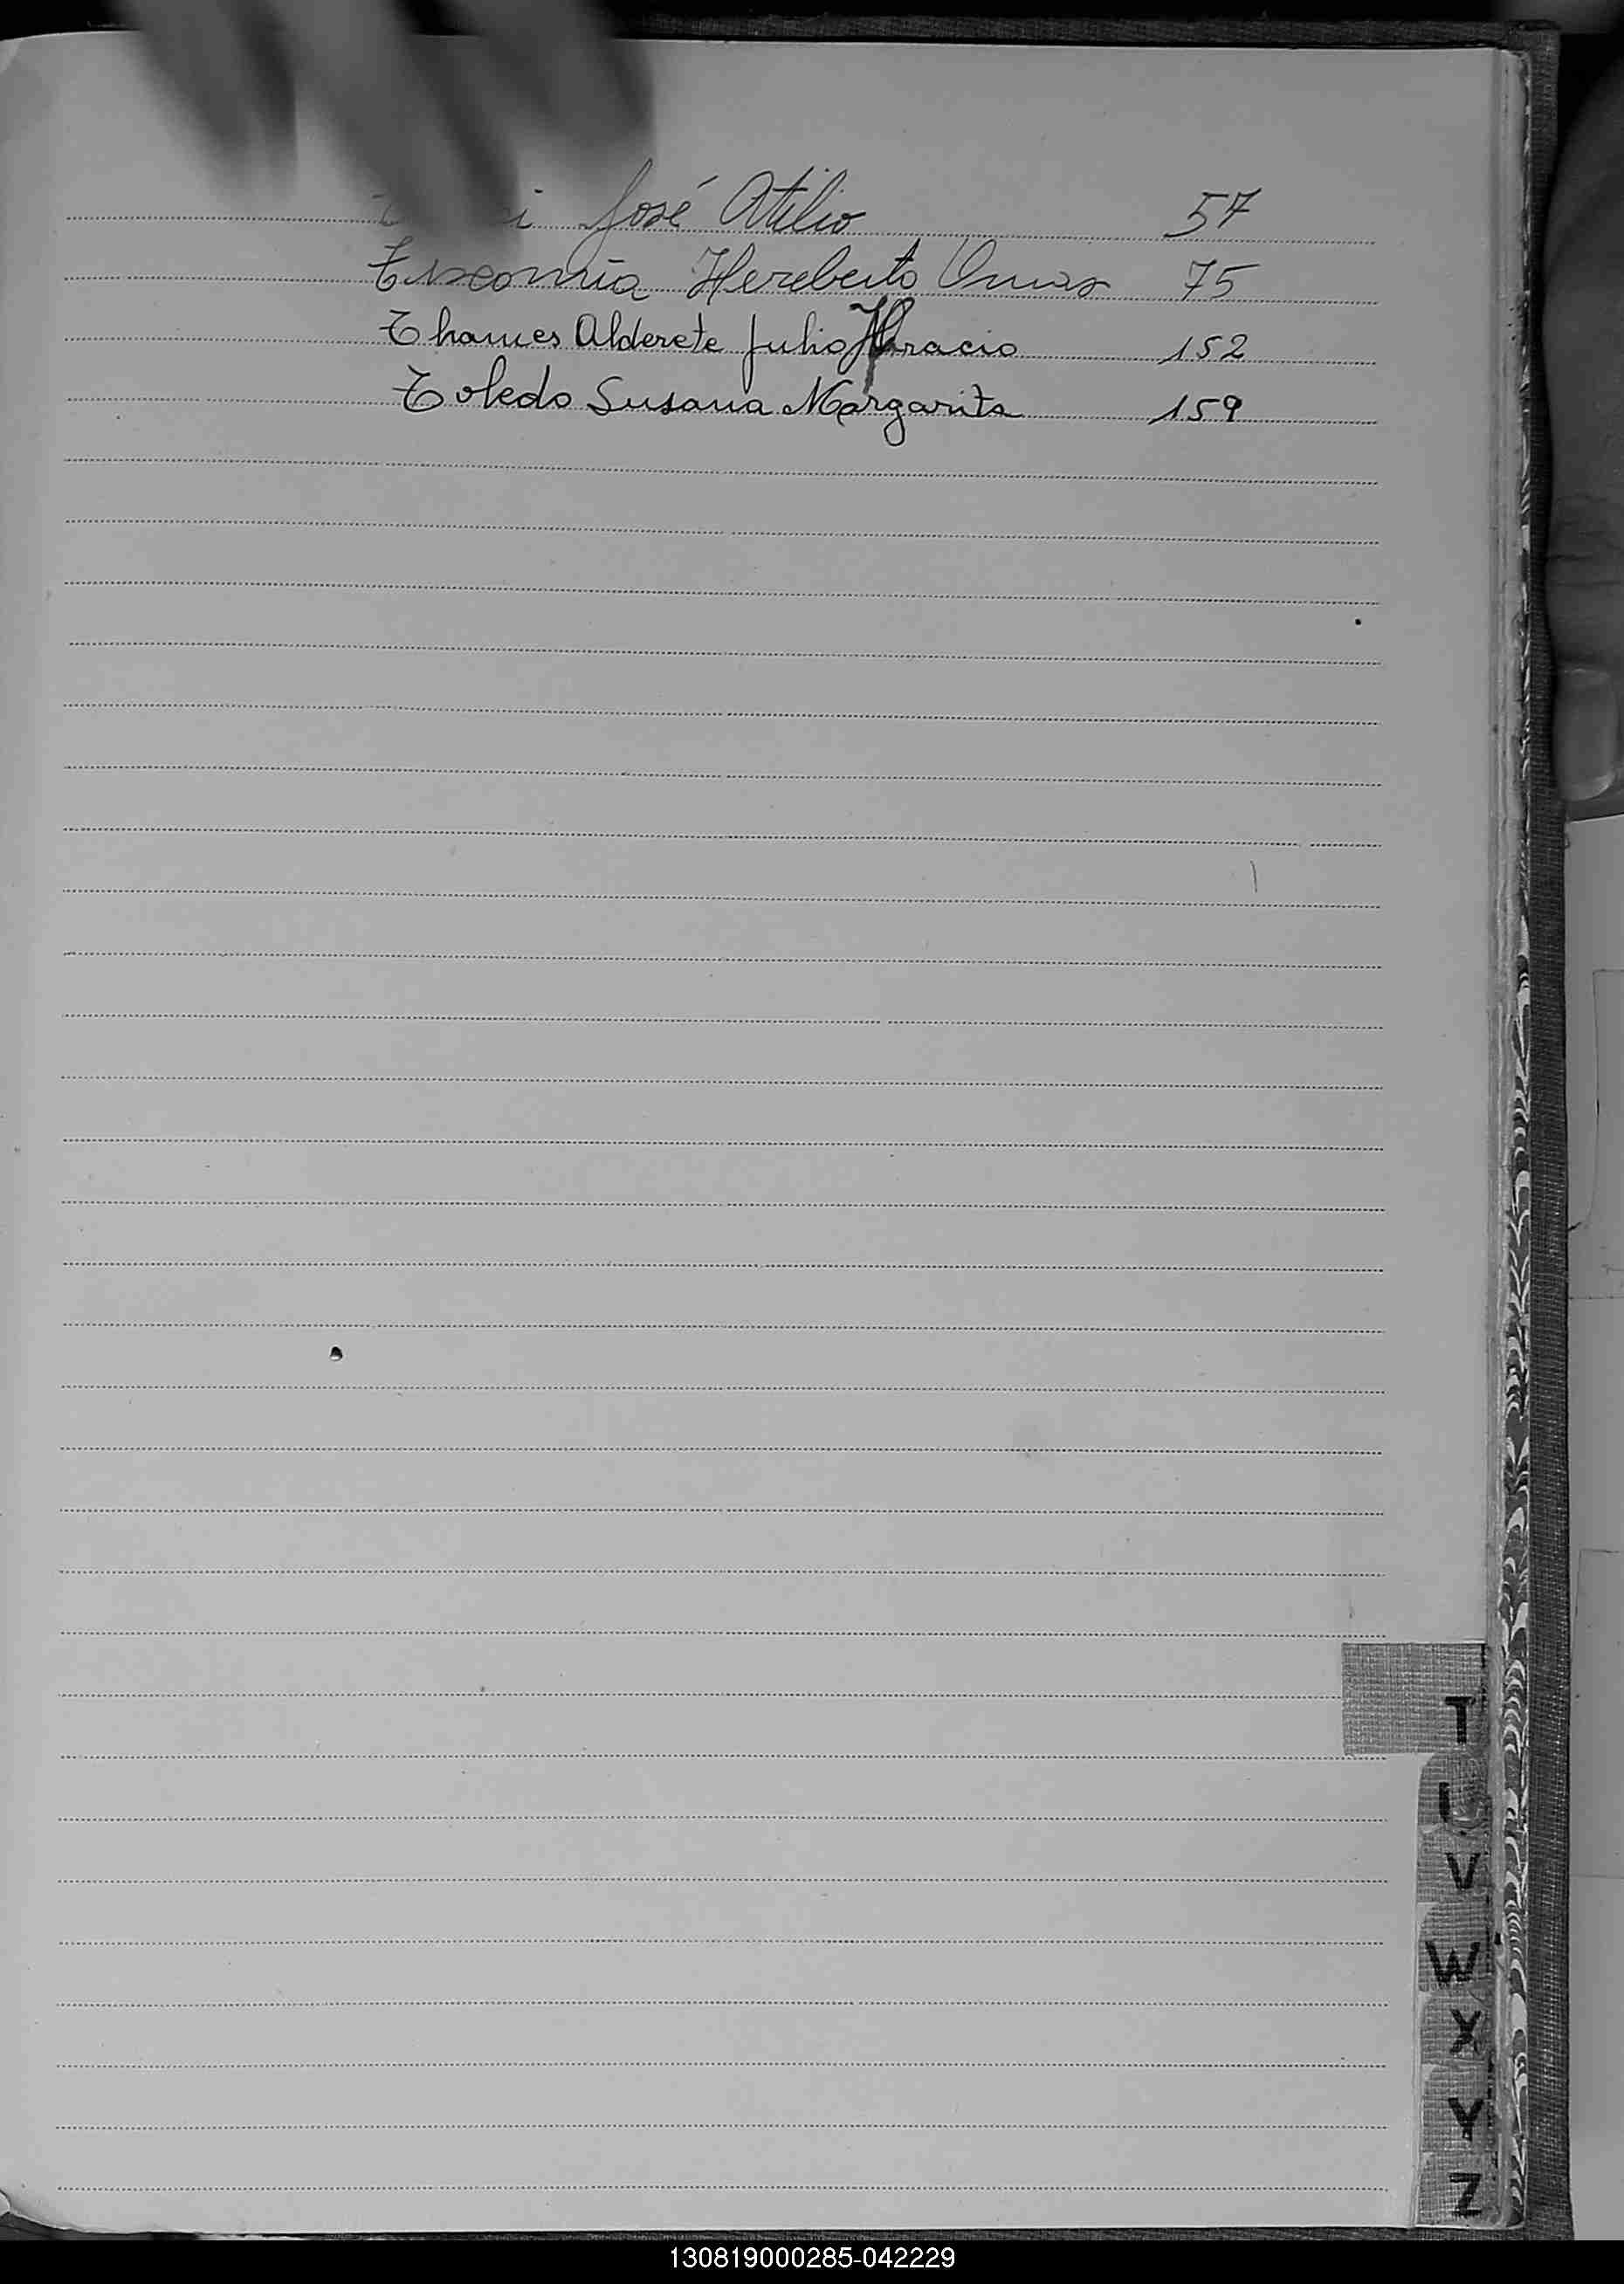 José Atilio 57
Hereberto Omar 75
Thames Alderete Julio Horacio 152
Toledo Susana Margarita 159
T
V
W
X
Y
Z
130819000285-042229